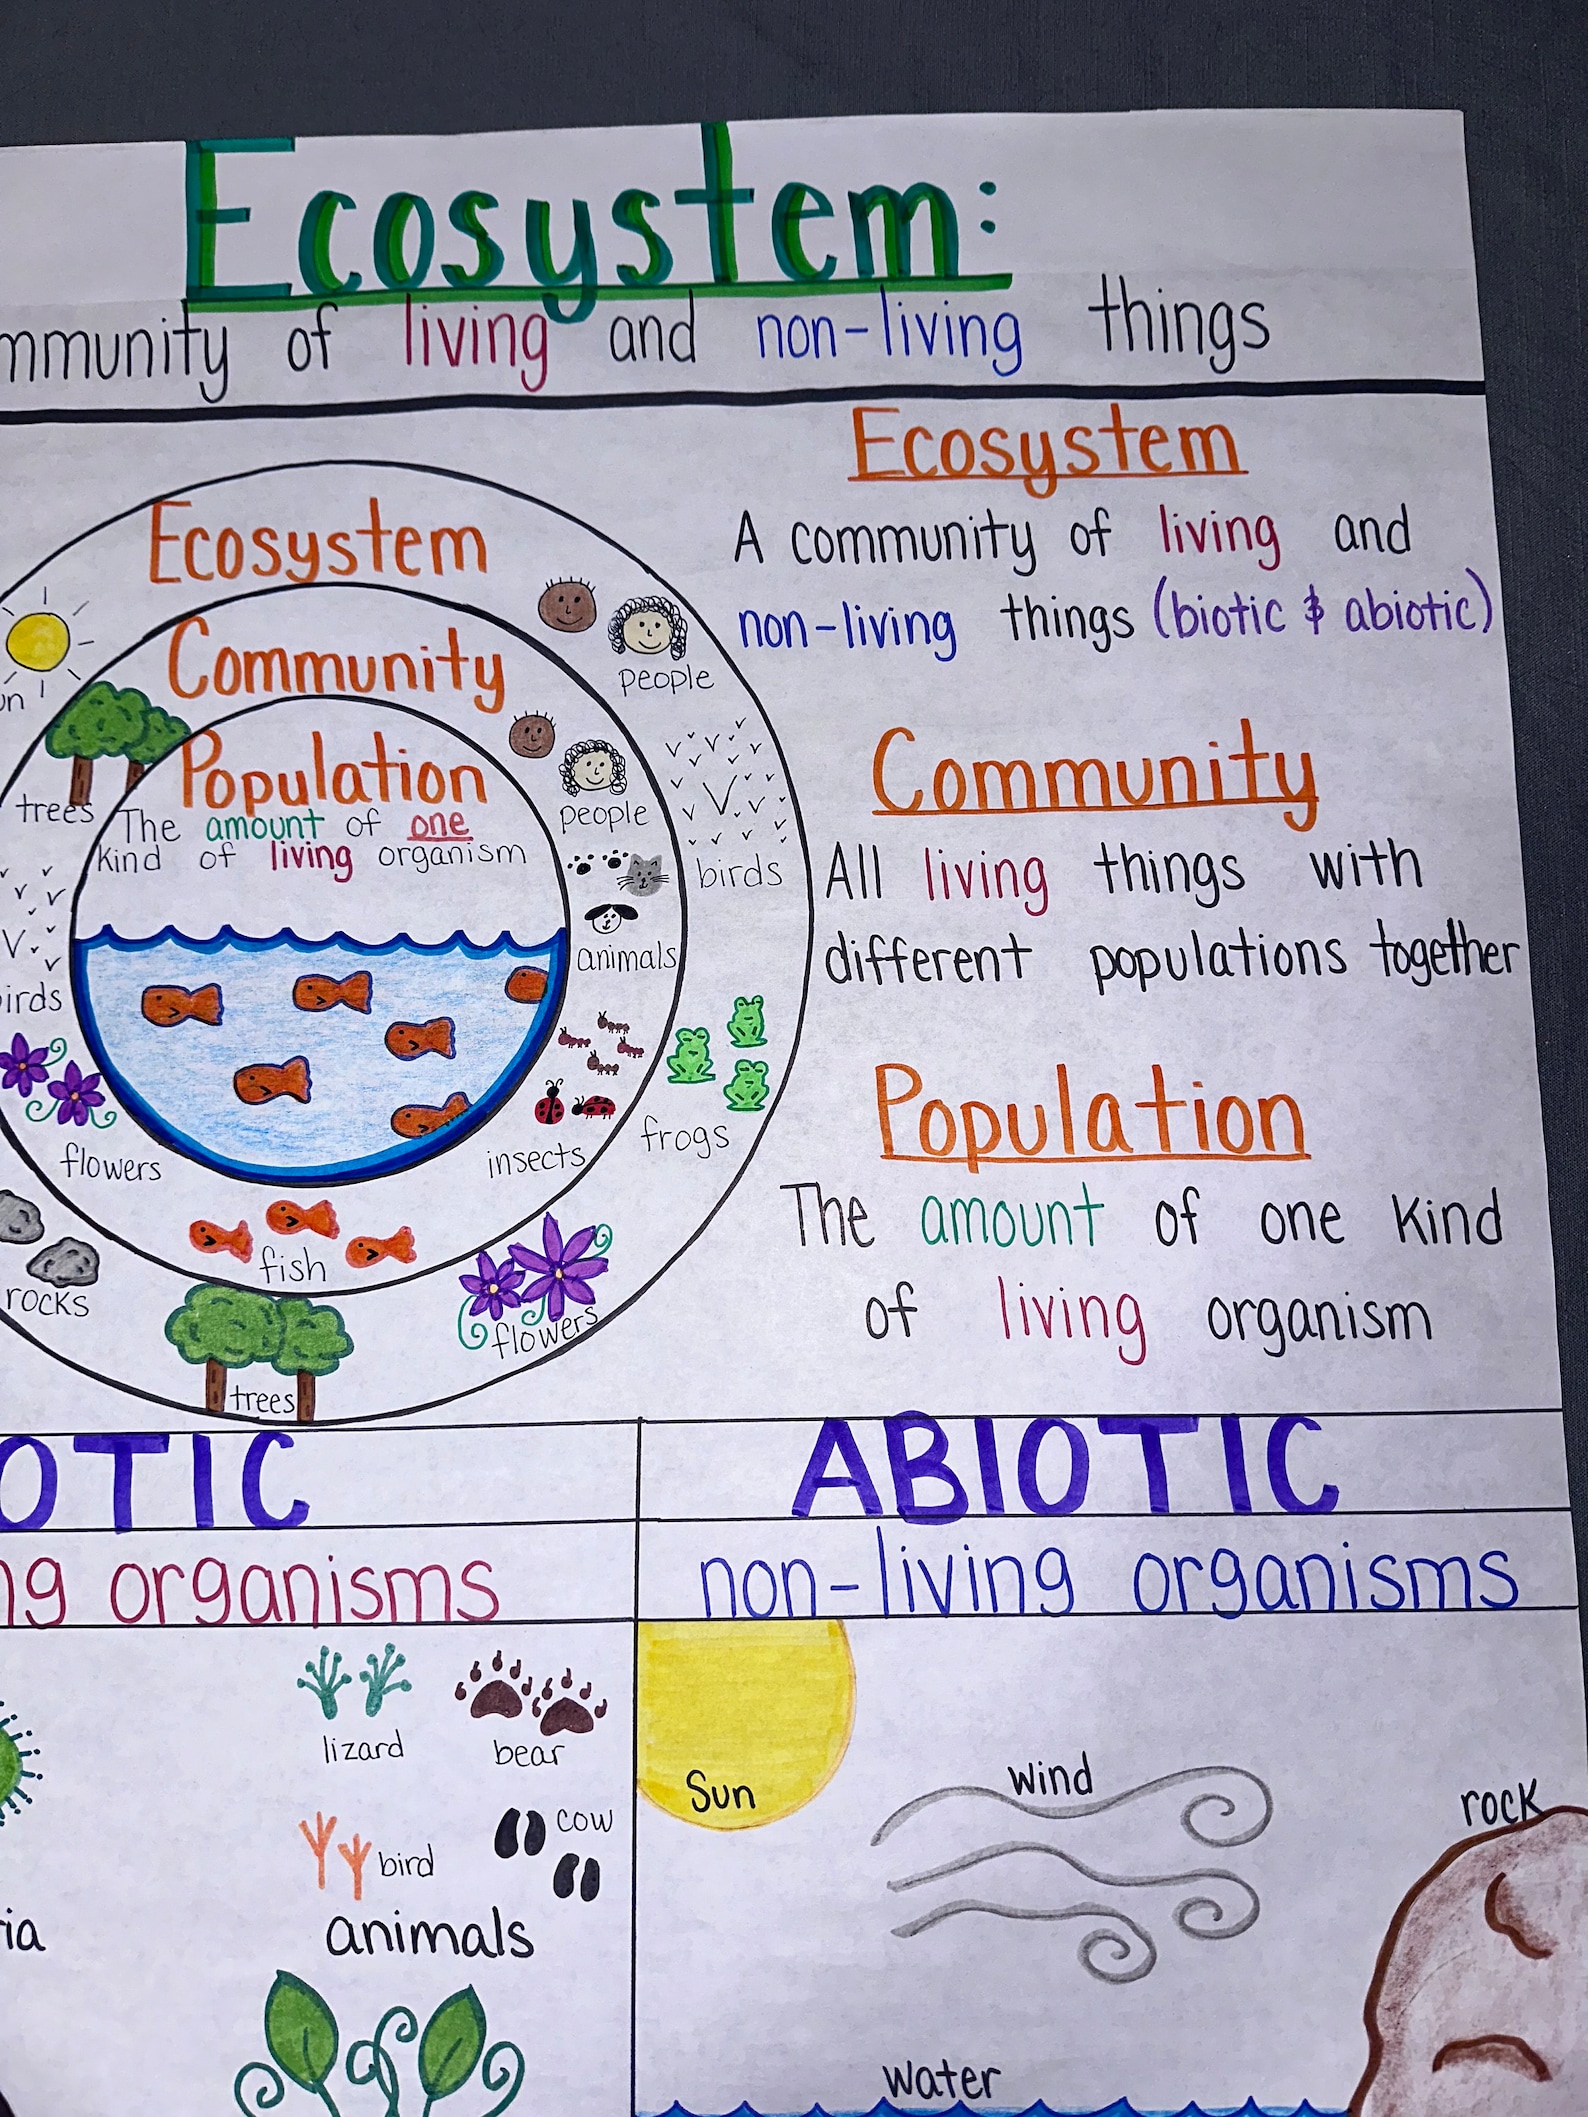 Ecosystem:
mmunity of living and non-living things
Ecosystem
Community
Population
The amount of one
kind of living organism
un
trees
irds
flowers
rocks
fish
trees
flowers
people
people
birds
animals
insects
frogs
Ecosystem
A community of living and
non-living things (biotic & abiotic)
Community
All living things with
different populations together
Population
The amount of one kind
of living organism
OTIC
ng organisms
lizard
bear
bird
cow
ria
animals
ABIOTIC
non-living organisms
Sun
wind
rock
water